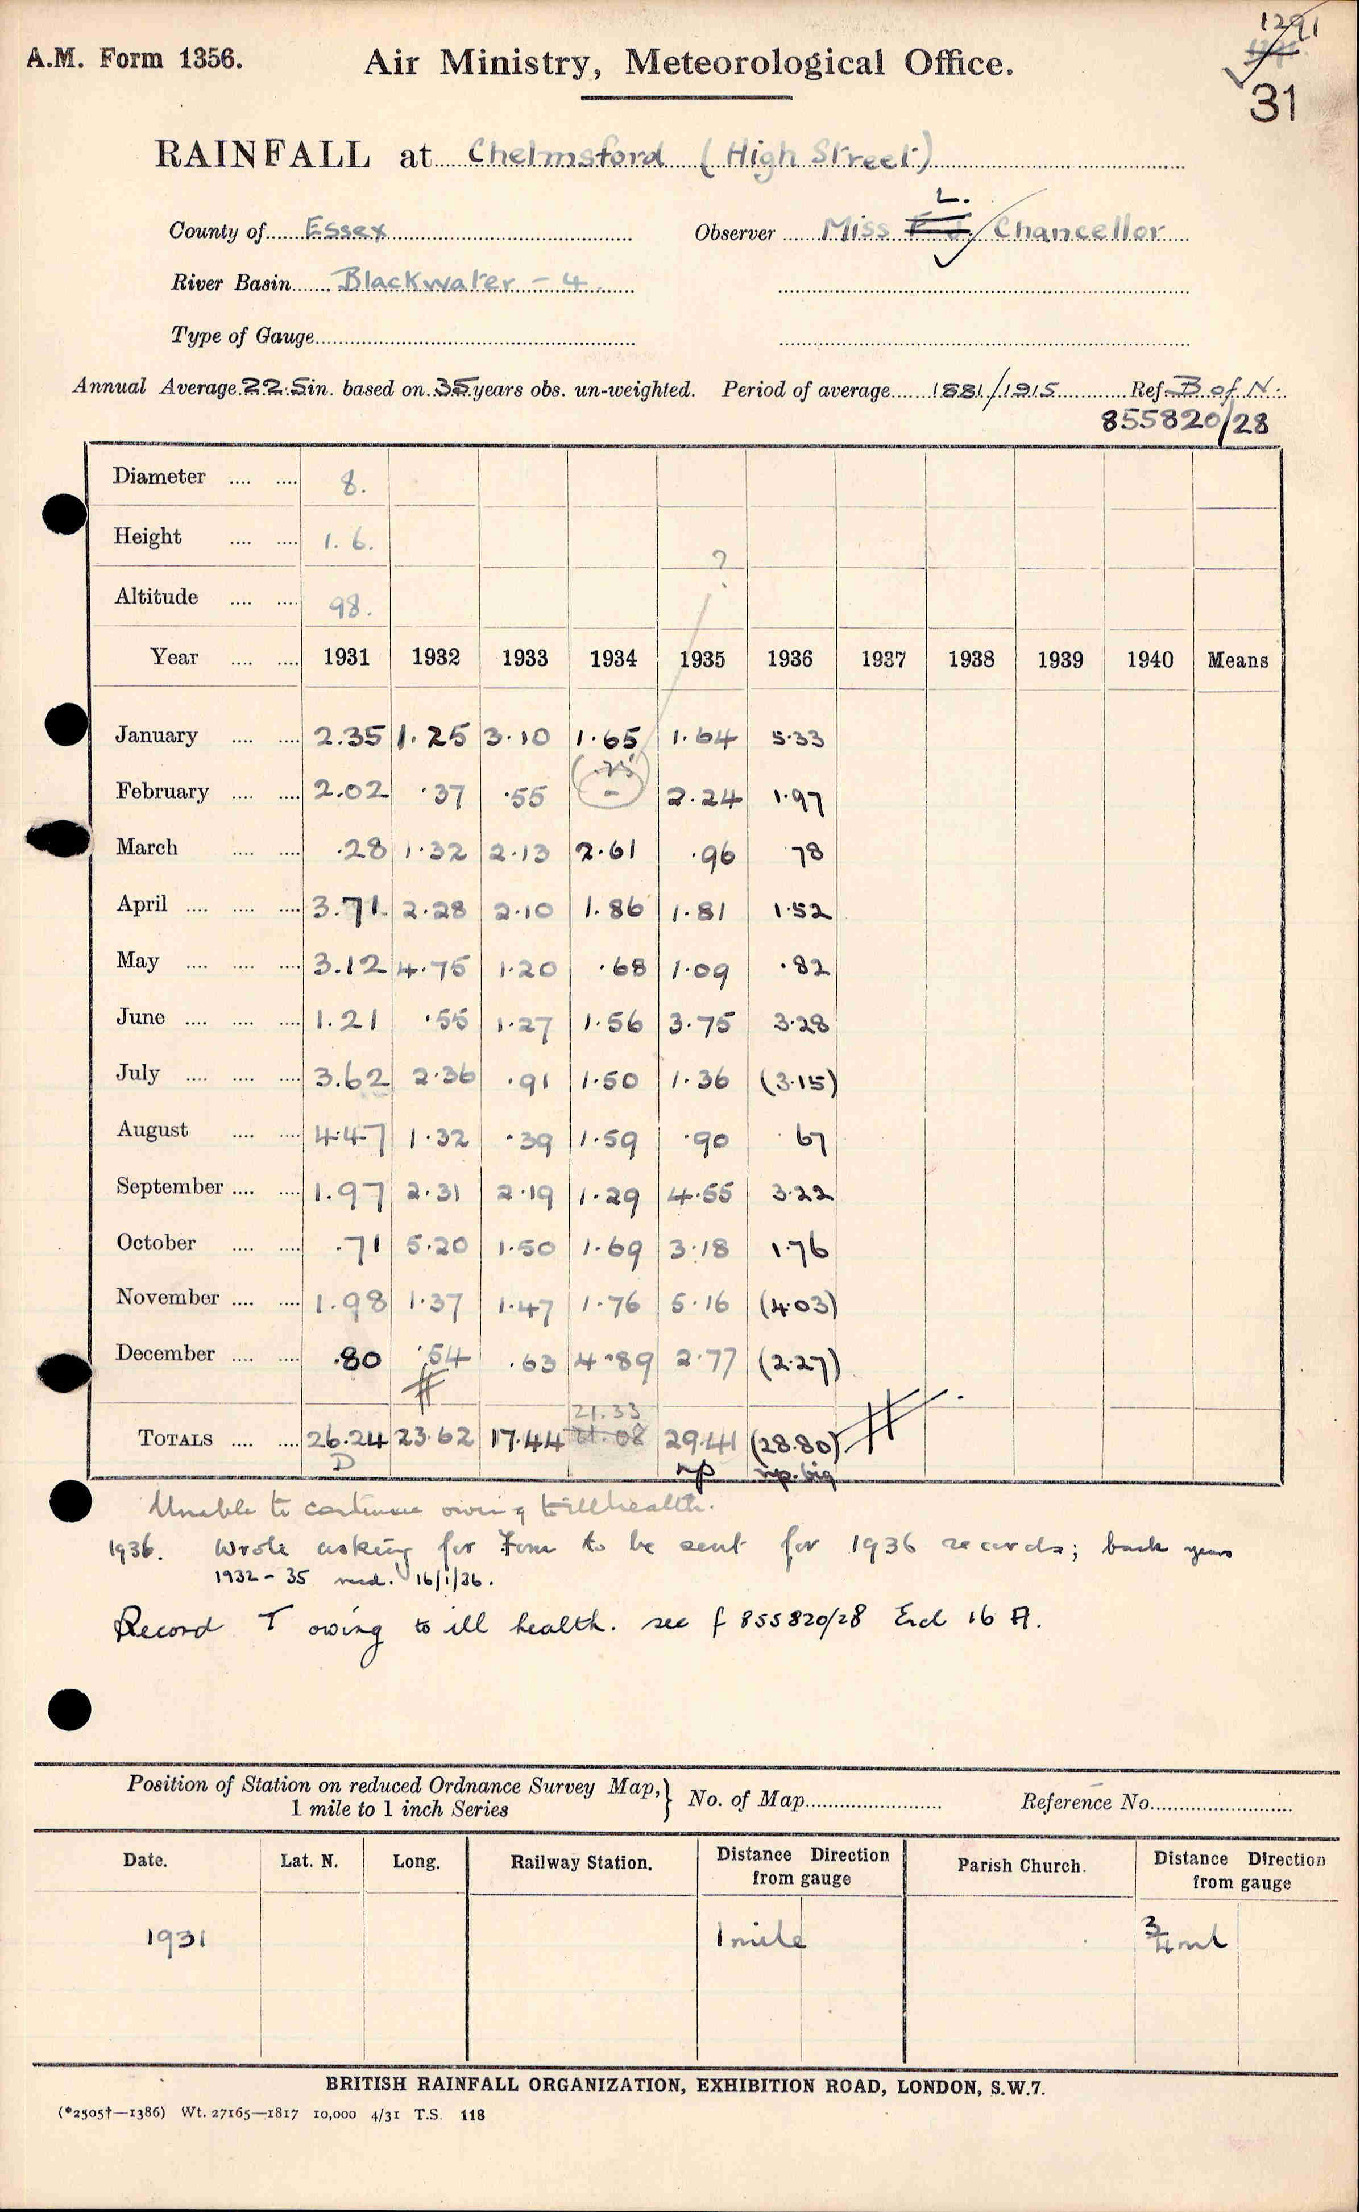 1291
A.M. Form 1356.
Air Ministry, Meteorological Office.
31
RAINFALL at Chelmsford (High Street)
County of Essex
Observer Miss L. Chancellor
River Basin Blackwater - 4
Type of Gauge
Annual Average 22.5 in. based on 35 years obs. un-weighted. Period of average 1881/1915 Ref. B of N.
855820/28
Diameter .... .... 8.
Height .... .... 1. 6.
?
Altitude .... .... 98.
Year .... .... 1931 1932 1933 1934 1935 1936 1937 1938 1939 1940 Means
January .... .... 2.35 1.25 3.10 1.65 1.64 5.33
February .... .... 2.02 .37 .55 (.25) - 2.24 1.97
March .... .... .28 1.32 2.13 2.61 .96 78
April .... .... .... 3.71 2.28 2.10 1.86 1.81 1.52
May .... .... .... 3.12 4.75 1.20 .68 1.09 .82
June .... .... .... 1.21 .55 1.27 1.56 3.75 3.28
July .... .... .... 3.62 2.36 .91 1.50 1.36 (3.15)
August .... .... 4.47 1.32 .39 1.59 .90 .67
September .... .... 1.97 2.31 2.19 1.29 4.55 3.22
October .... .... .71 5.20 1.50 1.69 3.18 1.76
November .... .... 1.98 1.37 1.47 1.76 5.16 (4.03)
December .... .... .80 .54 .63 4.89 2.77 (2.27)
21.33
TOTALS .... .... 26.24 23.62 17.44 21.08 29.41 (28.80)
D np np. big
Unable to continue owing to ill health.
1936. Wrote asking for Form to be sent for 1936 records; back years
1932 - 35 recd. 16/1/36.
Record T owing to ill health. see f 855820/28 Encl 16 A.
Position of Station on reduced Ordnance Survey Map,} No. of Map Reference No.
1 mile to 1 inch Series
Date. Lat. N. Long. Railway Station. Distance Direction from gauge Parish Church. Distance Direction from gauge
1931 1 mile 3/4 ml
BRITISH RAINFALL ORGANIZATION, EXHIBITION ROAD, LONDON, S.W.7.
(*2505†—1386) Wt. 27165—1817 10,000 4/31 T.S. 118